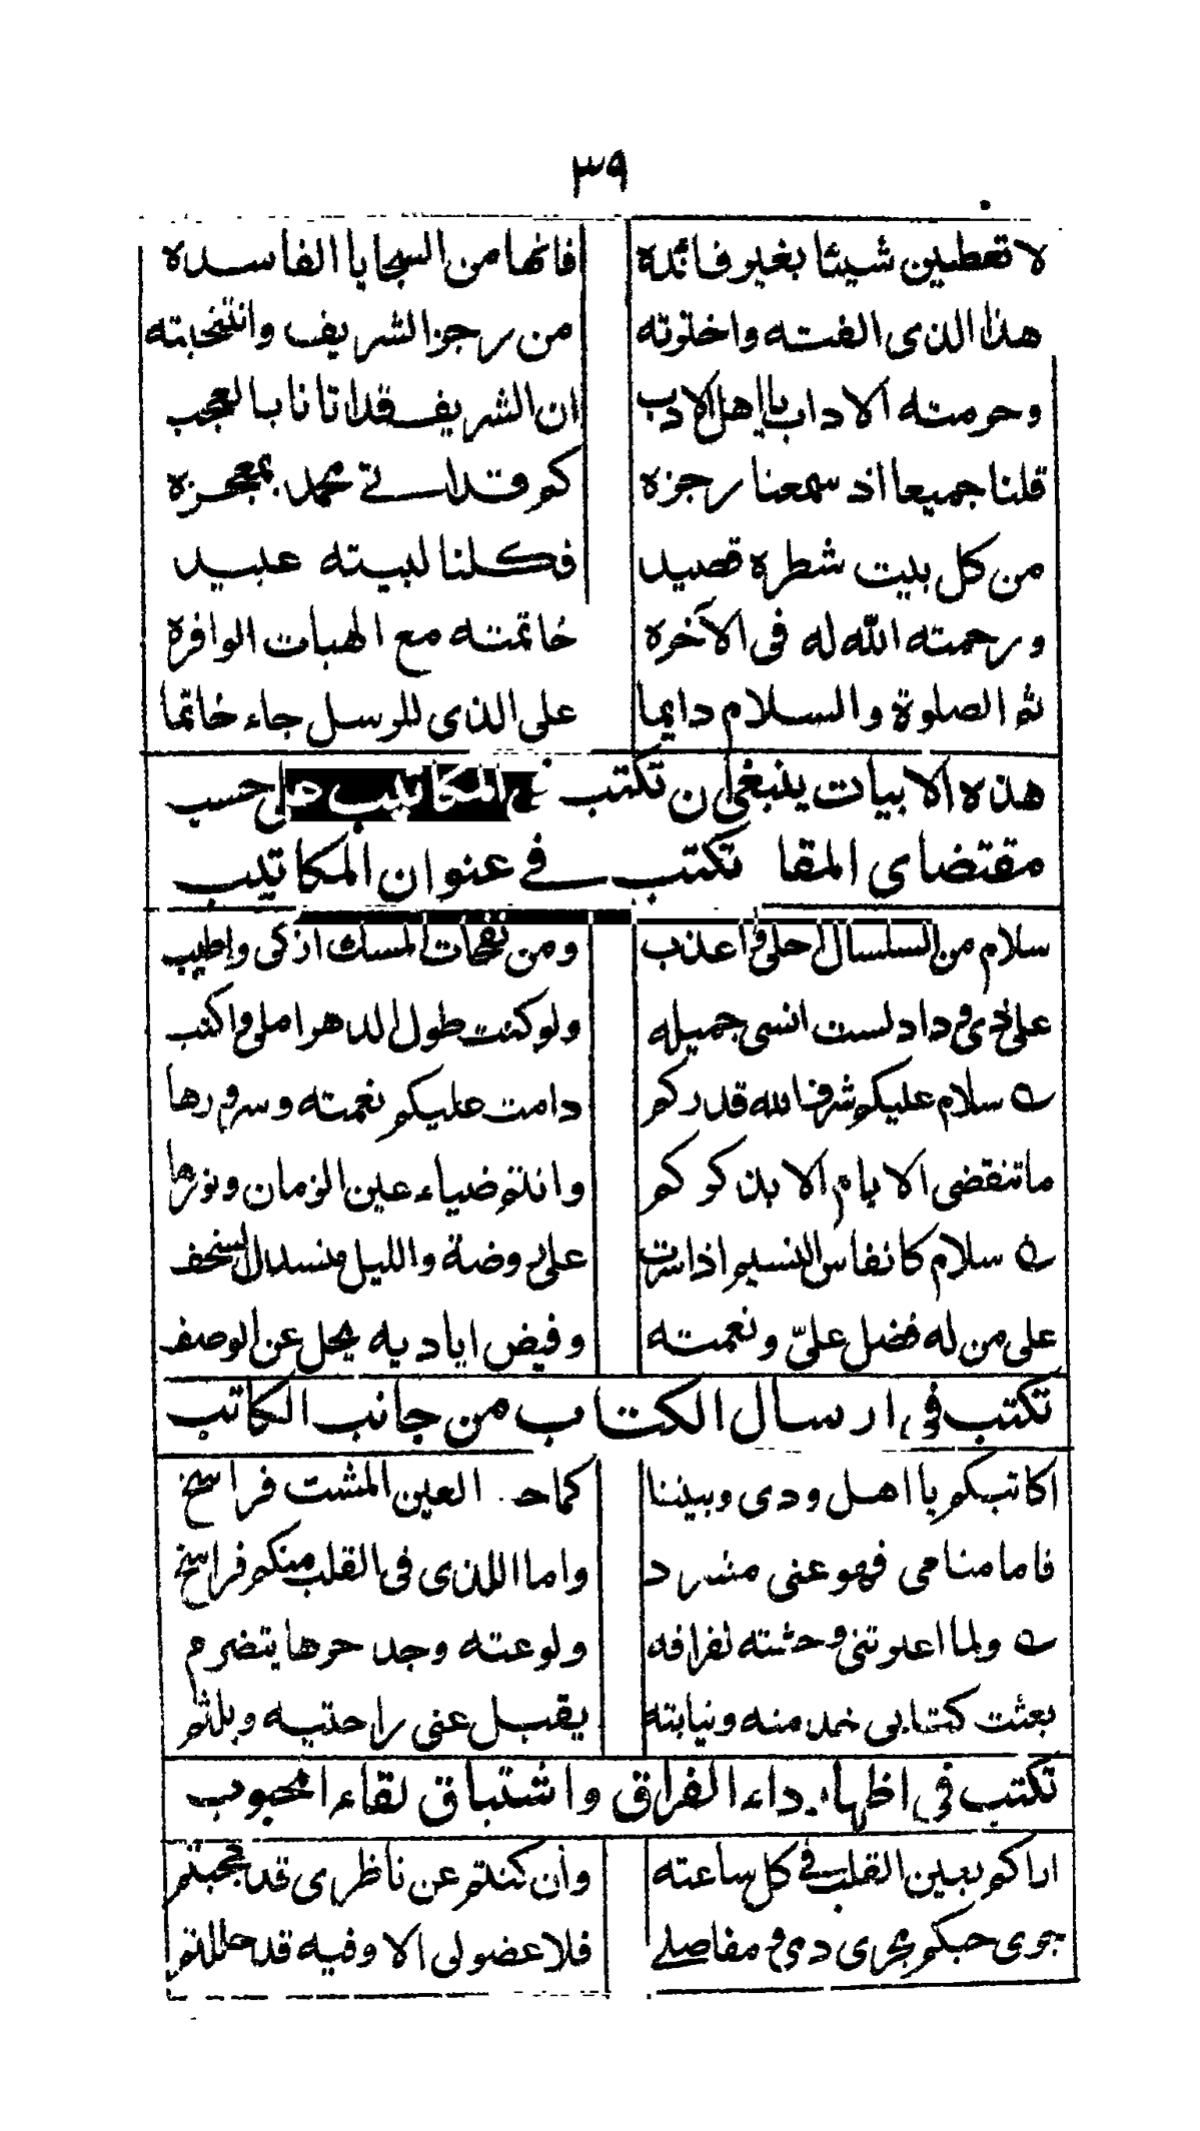 ٣٩
لا تعطين شيئا بغير فائده فانها من السجايا الفاسده
هذا الذى الفته واخترته من رجز الشريف وانتخبته
وحرمته الاداب يا اهل الادب ان الشريف قد اتانا بالعجب
قلنا جميعا اذ سمعنا رجزه كم قد اتى محمد بمعجزه
من كل بيت شطره قصيد فكلنا لبيته عبيد
ورحمته الله له فى الآخره خاتمته مع الهبات الوافره
ثم الصلوة والسلام دايما على الذى للرسل جاء خاتما
هذه الابيات ينبغى ان تكتب فى المكاتيب على حسب
مقتضاى المقا تكتب فى عنوان المكاتيب
سلام من السلسال احلى واعذب ومن نفحات المسك ازكى واطيب
على ذى وداد لست انسى جميله ولو كنت طول الدهر املى واكتب
ن سلام عليكم شرف الله قدركم دامت عليكم نعمته وسرورها
ما تنقضى الايام الا بذكركم وانتم ضياء عين الزمان ونورها
ن سلام كانفاس النسيم اذا سرت على روضة والليل منسدال السخف
على من له فضل علىّ ونعمته وفيض اياديه يجل عن الوصف
تكتب فى ارسال الكتاب من جانب الكاتب
اكاتبكم يا اهل ودى وبيننا كما العين المشت فراسخ
فاما منامى فهو عنى مشرد واما اللذى فى القلب منكم فراسخ
ن ولما اعلوتنى وحشته لفراقه ولوعته وجد حرها يتضرم
بعثت كتابى خدمنه ونيابته يقبل عنى راحتيه ويلثم
تكتب فى اظهار داء الفراق واشتياق لقاء المحبوب
اراكم بعين القلب فى كل ساعته وأن كنتم عن ناظرى قد حجبتم
جوى حبكم مجرى دمى ومفاصلى فلا عضولى الا وفيه قد حللتم